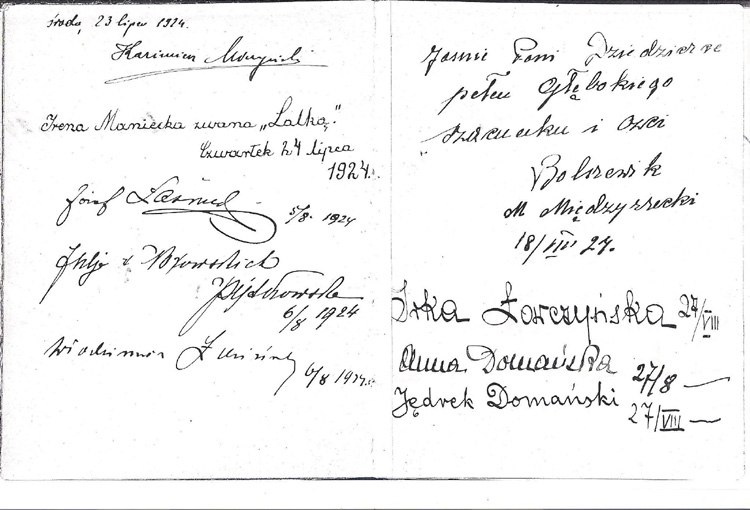 środa, 23 lipca 1924.
Kazimierz
Irena Maniecka zwana „Lalką”.
Czwartek 24 lipca
1924.
Józef
5/8. 1924
6/8 1924
Włodzimierz 6/8 1924.
Jaśnie Pani Dziedziczce
pełen Głębokiego
szacunku i czci
Bolszewik
M Międzyrzecki
18/VIII 24.
Irka Żarczyńska 27/VIII
Anna Domańska 27/8 —
Jędrek Domański 27/VIII —